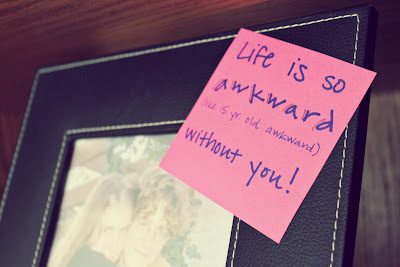 Life is so
awkward
(like 15 yr. old awkward)
without you!